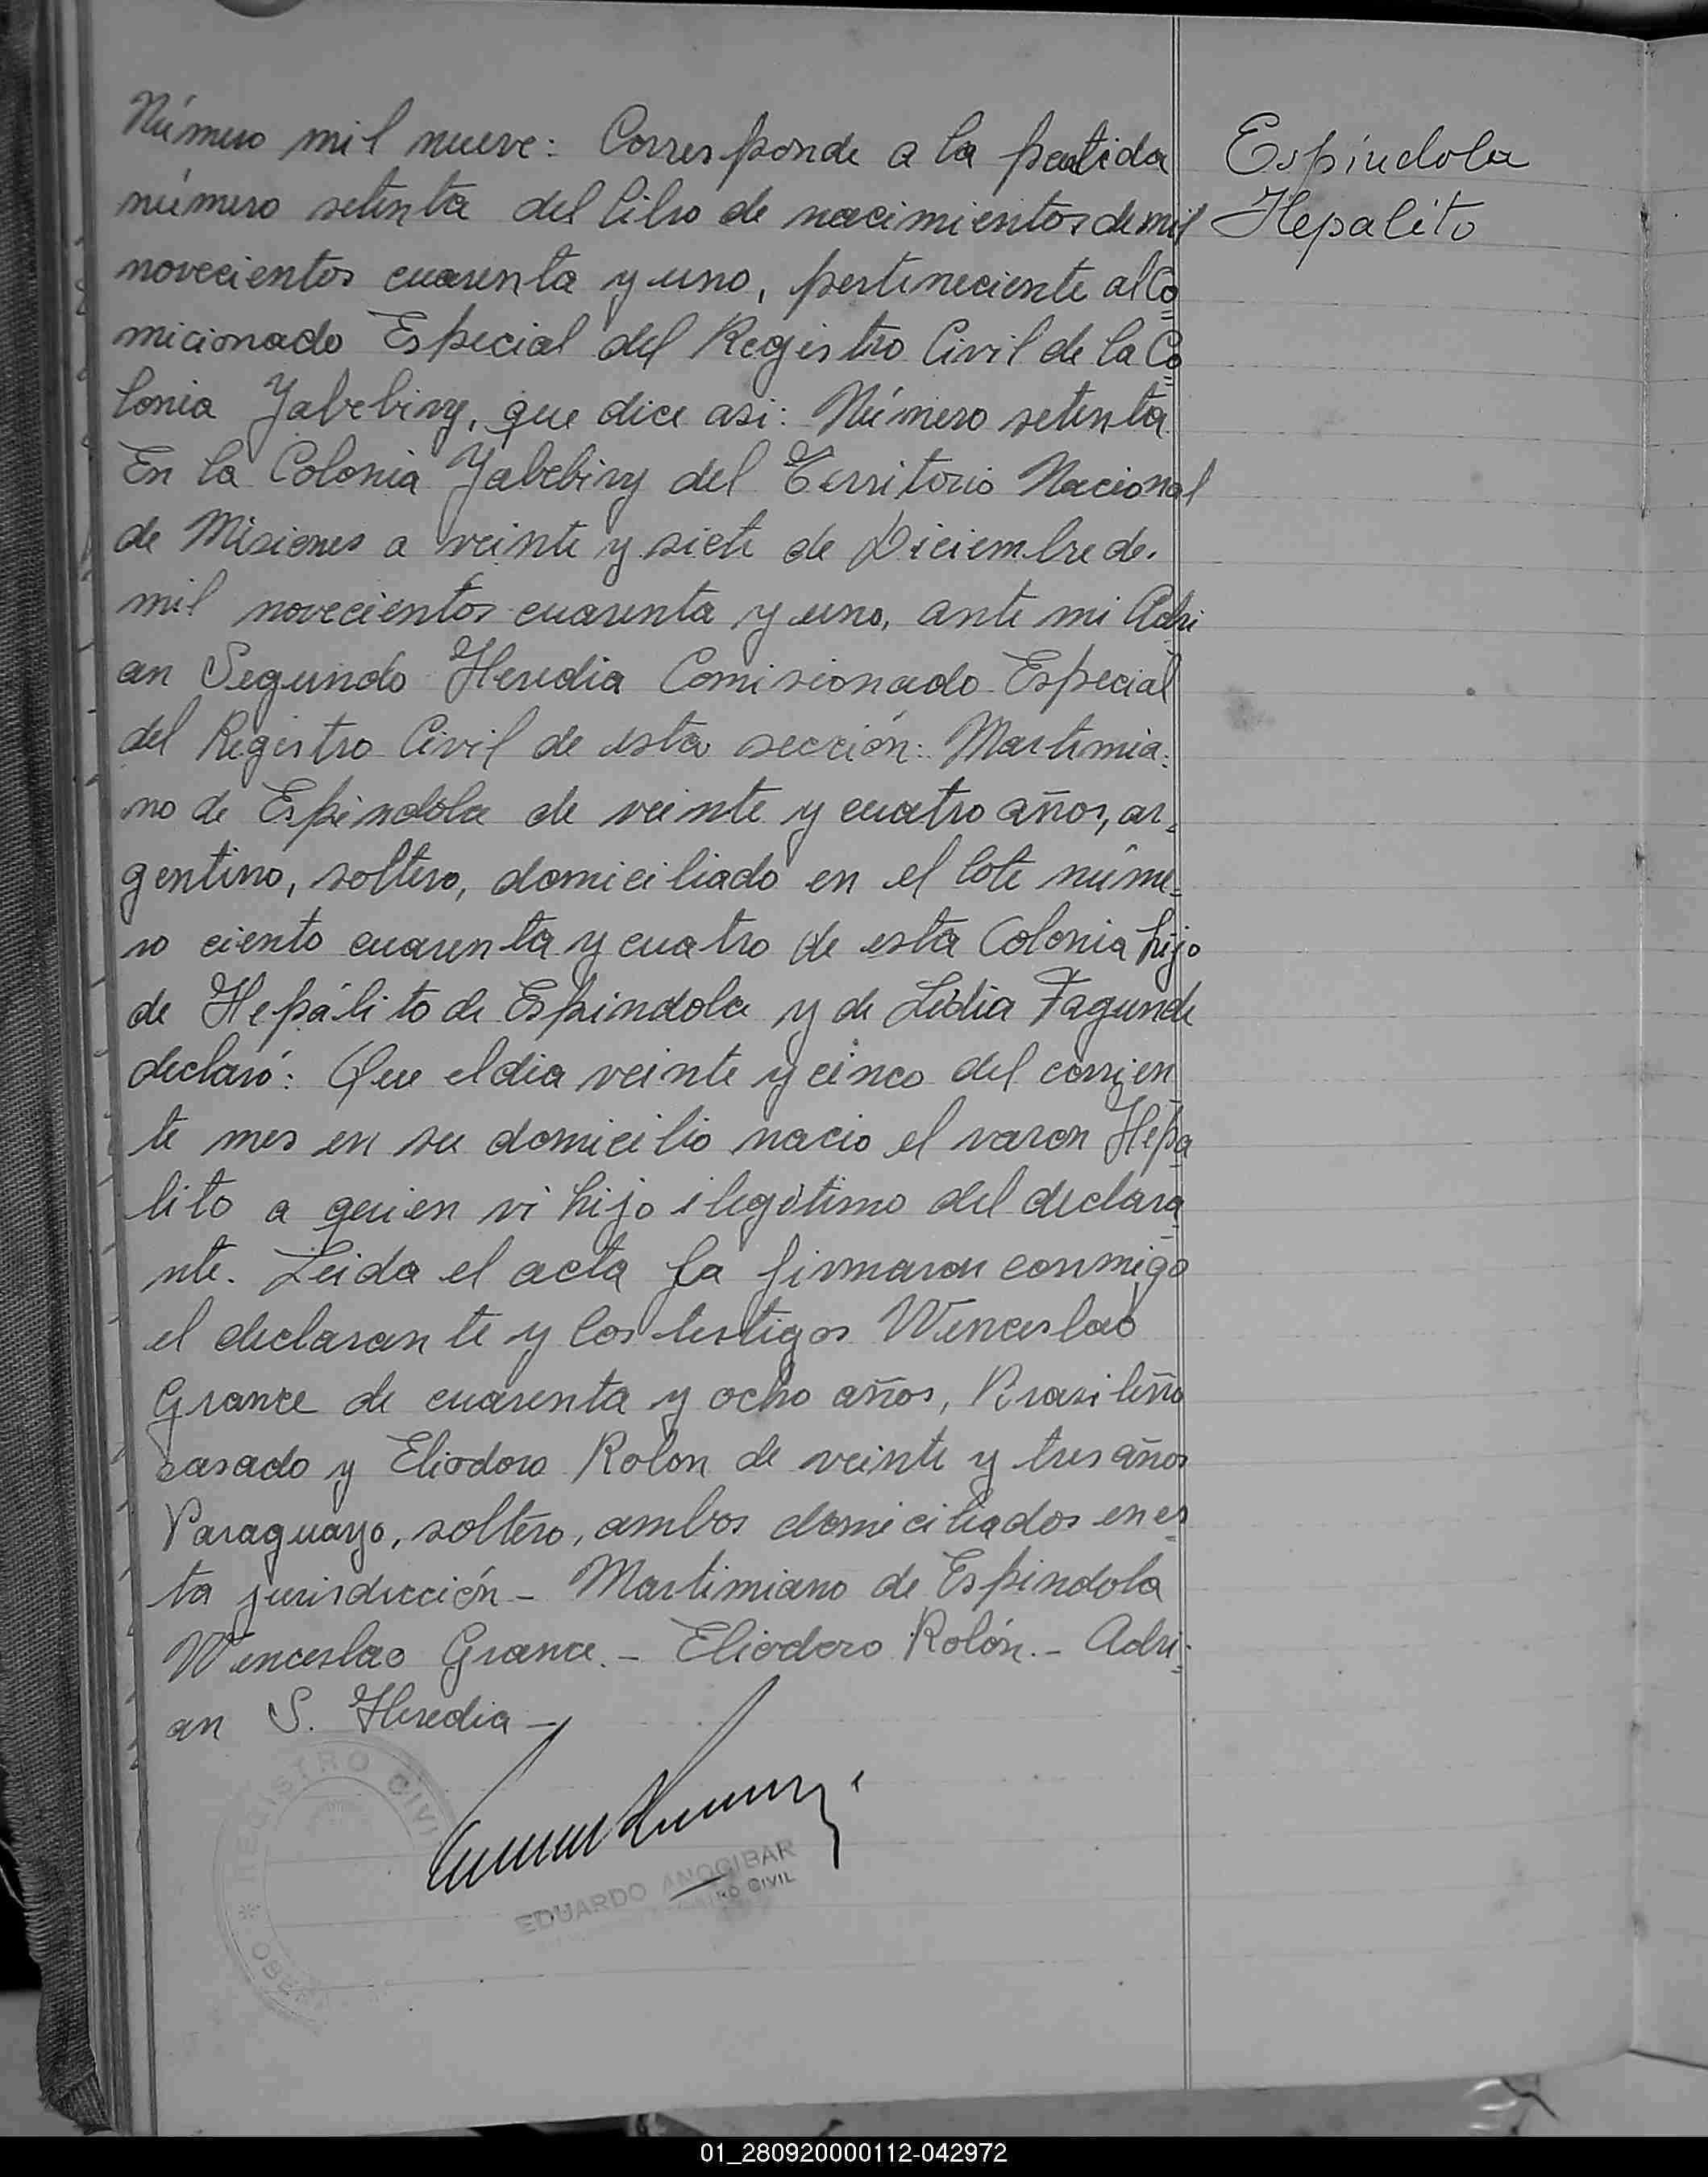 Número mil nueve: Corresponde a la partida
número setenta del libro de nacimientos de mil
novecientos cuarenta y uno, perteneciente al Co
micionado Especial del Registro Civil de la Co
lonia Yabebiry, que dice asi: Número setenta.
En la Colonia Yabebiry del Territorio Nacional
de Misiones a veinte y siete de Diciembre de.
mil novecientos cuarenta y uno, ante mi Adri
an Segundo Heredia Comisionado Especial
del Registro Civil de esta sección: Martimia-
no de Espindola de veinte y cuatro años, ar-
gentino, soltero, domiciliado en el lote núme=
ro ciento cuarenta y cuatro de esta Colonia hijo
de Hepálito de Espindola y de Lidia Fagunde
declaró: Que el dia veinte y cinco del corrien
te mes en su domicilio nacio el varon Hepa
lito a quien vi hijo ilegitimo del declara
nte. Leida el acta la firmaron conmigo
el declarante y los testigos Wenceslao
Grance de cuarenta y ocho años, Brasileño
casado y Eliodoro Rolon de veinte y tres años
Paraguayo, soltero, ambos domiciliados en es
ta jurisdicción - Martimiano de Espindola
Wenceslao Grance. - Eliodoro Rolón. - Adri=
an S. Heredia -
Espíndola
Hepalito
REGISTRO CIVIL
EDUARDO ANOCIBAR
CIVIL
01_280920000112-042972